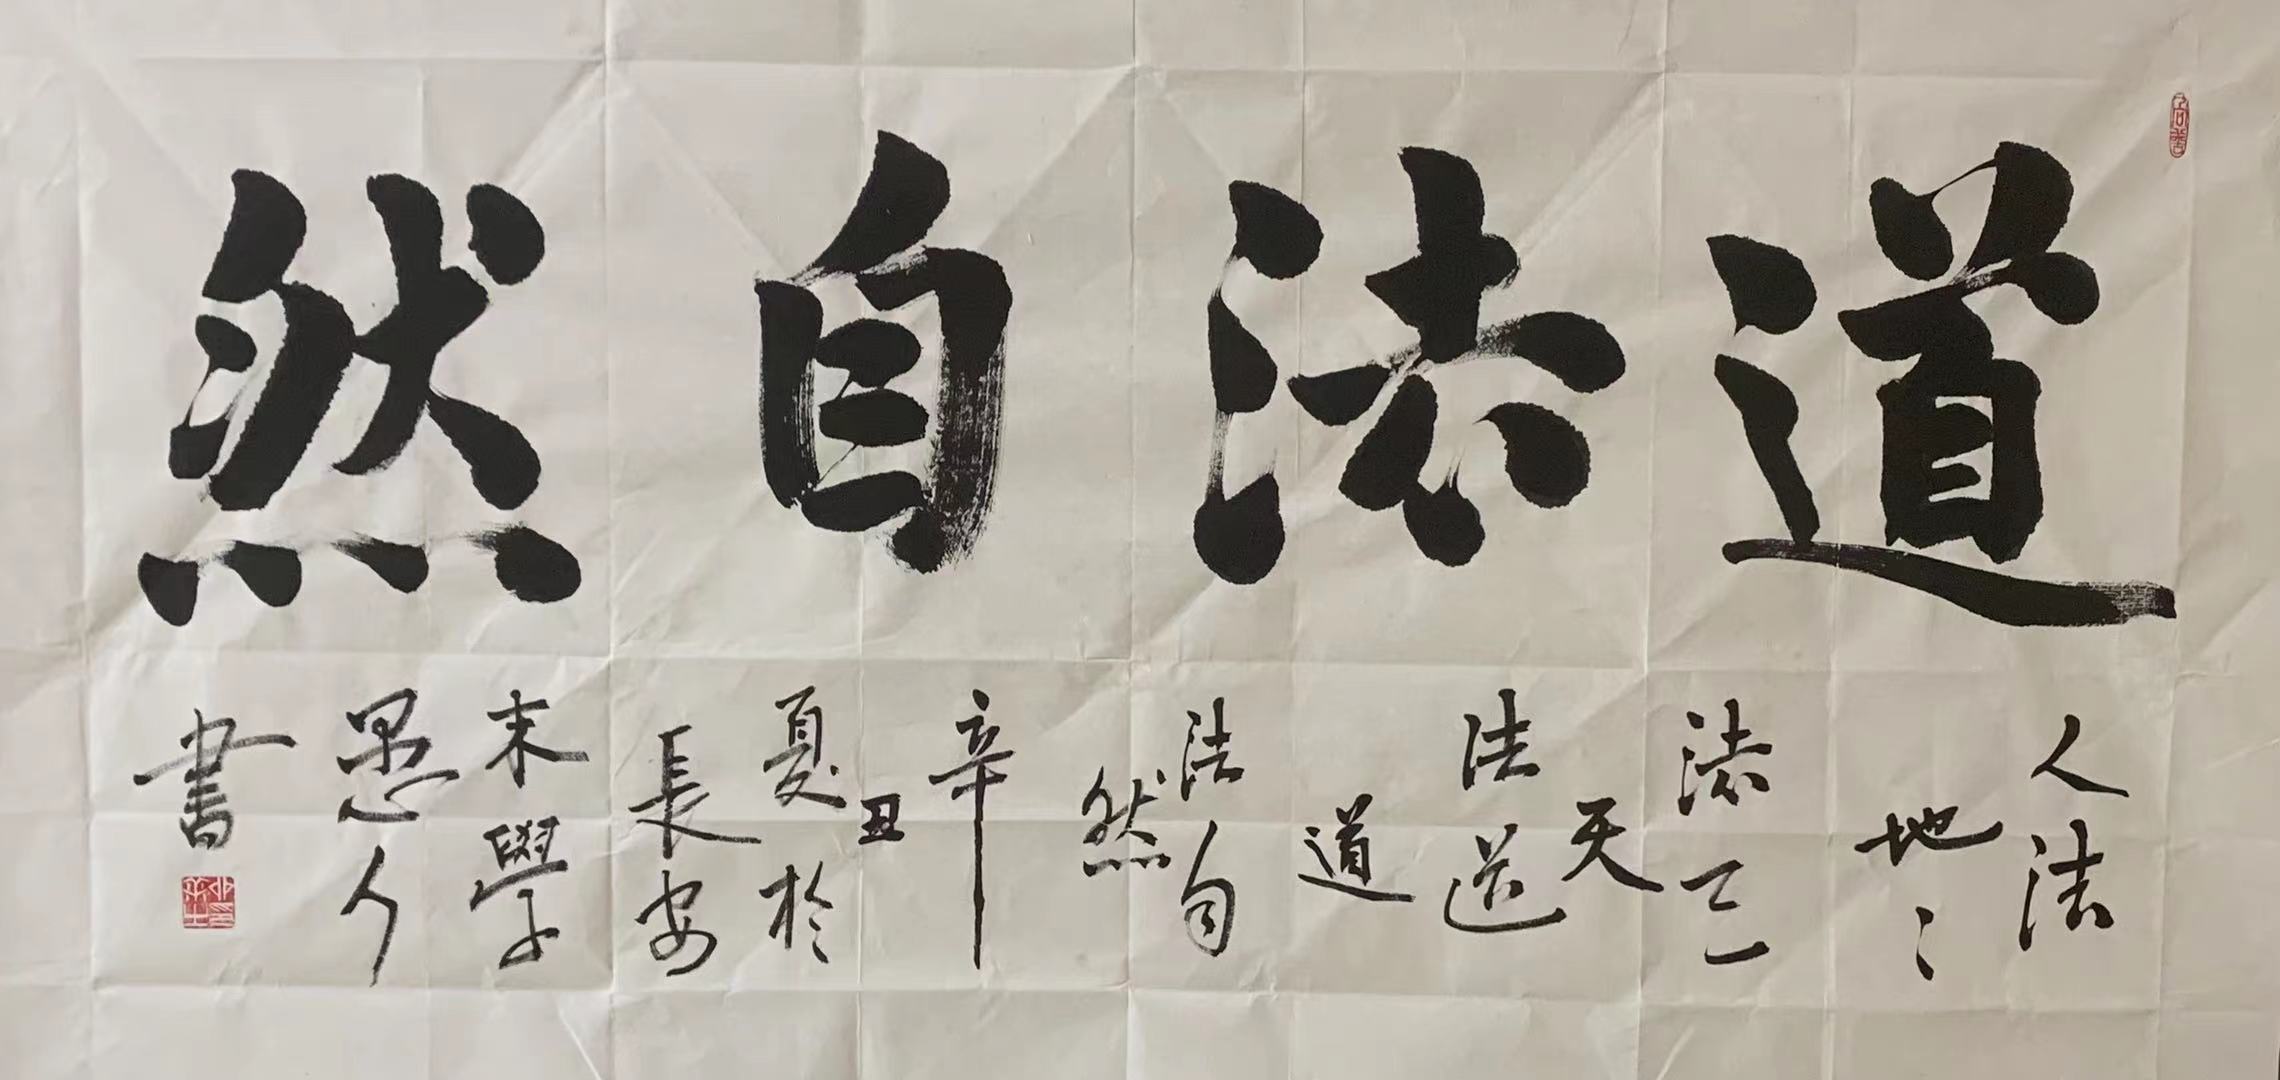 道法自然
人法
地〻
法天
天
法道
道
法自
然
辛
丑
夏於
長安
末學
愚人
書